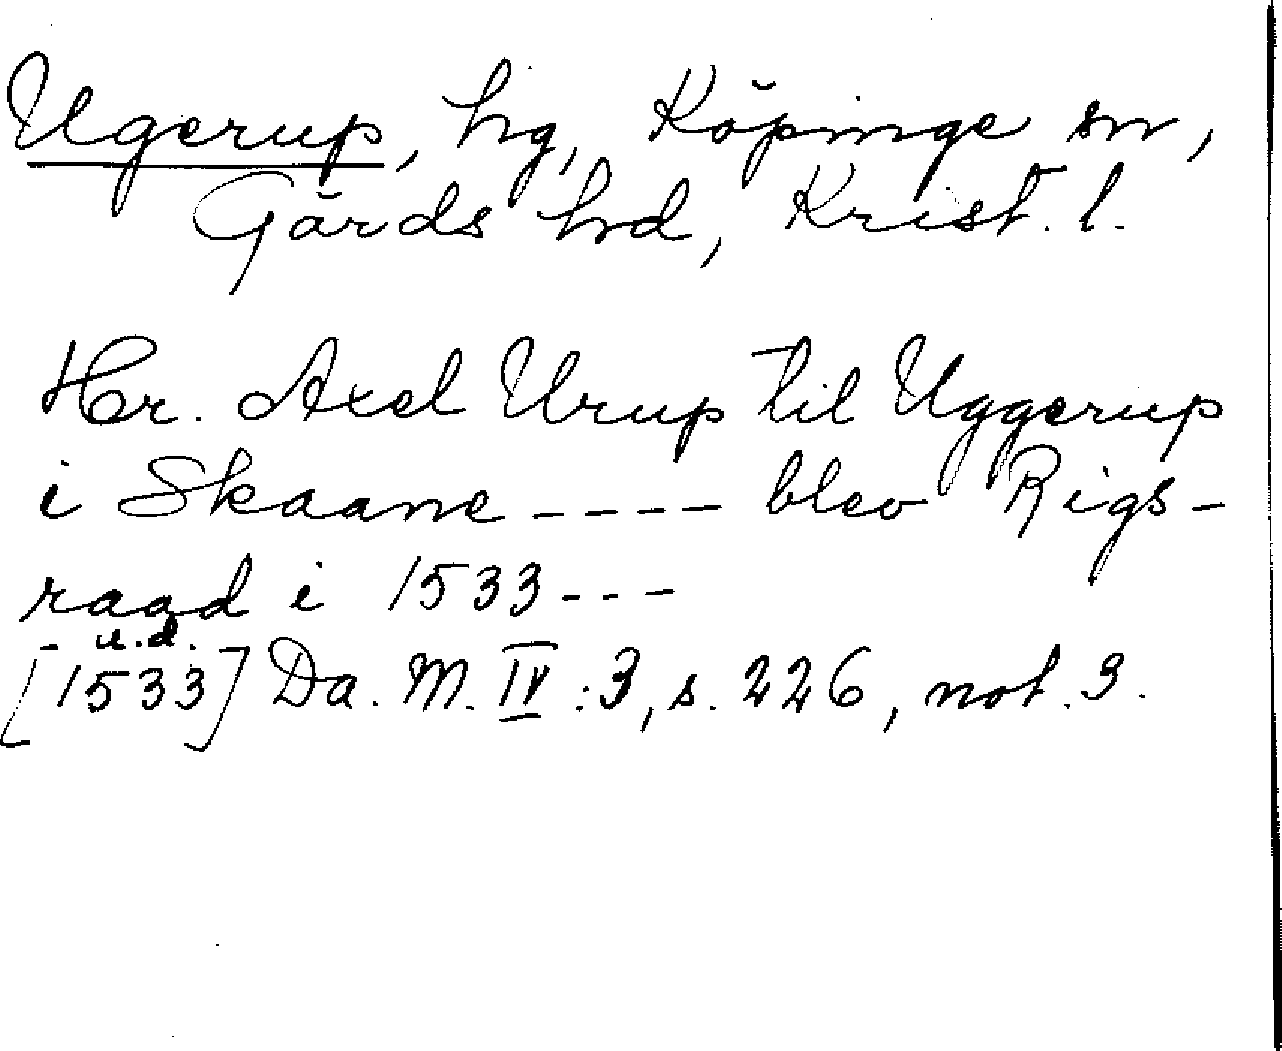 Ugerup, hg, Köpinge sn,
Gärds hrd, Krist. l.
Hr. Axel Urup til Uggerup
i Skaane ---- blev Rigs-
raad i 1533---
u.d.
[1533] Da. M. IV:3, s. 226, not. 3.